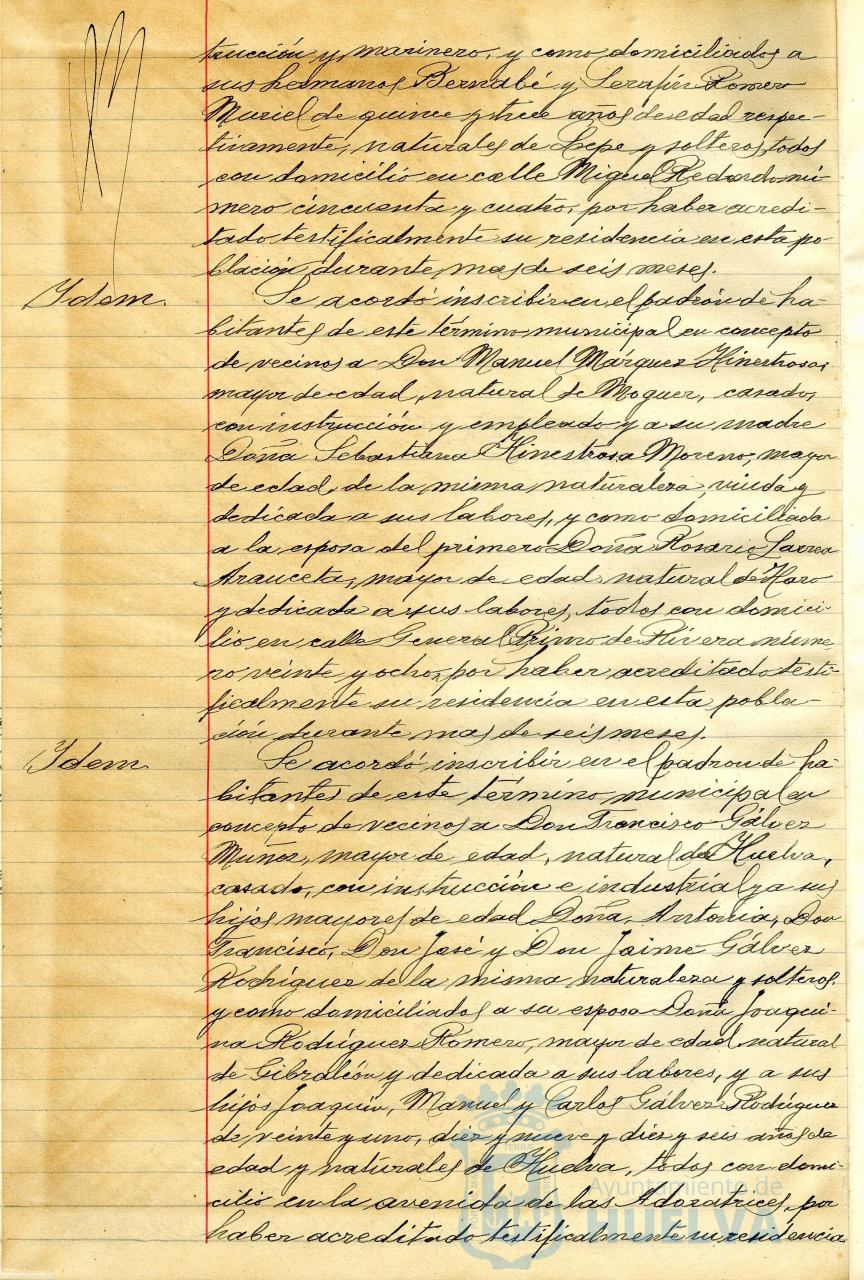 trucción y, marinero, y como domiciliados a
sus hermanos Bernabé y Serafín Romero
Muriel de quince y trece años de edad respec-
tivamente, naturales de Lepe y solteros, todos
con domicilio en calle Miguel Redondo nú-
mero cincuenta y cuatro, por haber acredi-
tado testificalmente su residencia en esta po-
blación durante mas de seis meses.
Idem.
Se acordó inscribir en el padrón de ha-
bitantes de este término municipal en concepto
de vecinos a Don Manuel Márquez Hinestrosa,
mayor de edad, natural de Moguer, casado,
con instrucción y empleado y a su madre
Doña Sebastiana Hinestrosa Moreno, mayor
de edad, de la misma naturaleza, viuda y
dedicada a sus labores, y como domiciliada
a la esposa del primero Doña Rosario Larrea
Arauceta, mayor de edad natural de Haro
y dedicada a sus labores, todos con domici-
lio en calle General Primo de Rivera núme-
ro veinte y ocho, por haber acreditado testi-
ficalmente su residencia en esta pobla-
ción durante mas de seis meses.
Idem.
Se acordó inscribir en el padrón de ha-
bitantes de este término municipal en
concepto de vecinos a Don Francisco Gálvez
Muñoz, mayor de edad, natural de Huelva,
casado, con instrucción e industrial y a sus
hijos mayores de edad Doña Antonia, Don
Francisco, Don José y Don Jaime Gálvez
Rodríguez de la misma naturaleza y solteros,
y como domiciliados a su esposa Doña Joaqui-
na Rodríguez Romero, mayor de edad natural
de Gibraleón y dedicada a sus labores, y a sus
hijos Joaquín, Manuel y Carlos Gálvez Rodríguez
de veinte y uno, diez y nueve y diez y seis años de
edad y naturales de Huelva, todos con domi-
cilio en la avenida de las Adoratrices, por
haber acreditado testificalmente su residencia
Ayuntamiento de
HUELVA